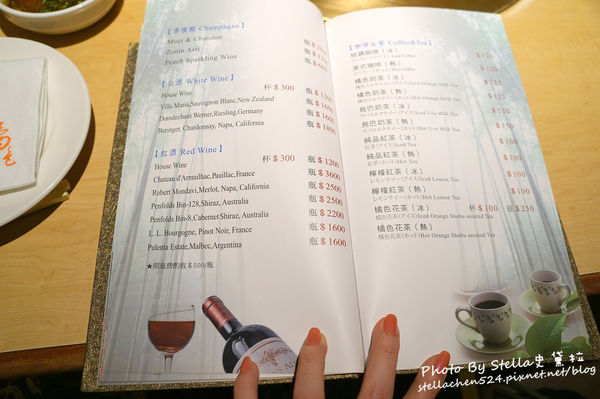 【香檳類 Champagne】
Moët & Chandon
Zonin Asti
Peach Sparkling Wine
【白酒 White Wine】
House Wine 杯 $ 300 瓶 $ 1200
Villa Maria,Sauvignon,Blanc,New Zealand 瓶 $ 1600
Domdechant Werner,Riesling,Germany 瓶 $ 1600
Beringer, Chardonnay, Napa, California 瓶 $ 1800
【紅酒 Red Wine】
House Wine 杯 $ 300 瓶 $ 1200
Chateau d'Armailhac,Pauillac,France 瓶 $ 3600
Robert Mondavi,Merlot, Napa, California 瓶 $ 2500
Penfolds Bin-128,Shiraz, Australia 瓶 $ 2500
Penfolds Bin-8,Cabernet Shiraz, Australia 瓶 $ 2200
L. L. Bourgogne, Pinot Noir, France 瓶 $ 1600
Pulenta Estate,Malbec,Argentina 瓶 $ 1600
★開瓶費酌收 $ 500/瓶
【咖啡&茶 Coffee&Tea】
特調咖啡（冰） $ 120
美式咖啡（熱） $ 120
橘色奶茶（冰）
Iced Orange Milk Tea
橘色奶茶（熱）
Hot Orange Milk Tea
烏巴奶茶（冰） $ 150
Iced Uva Milk Tea
烏巴奶茶（熱） $ 150
Hot Uva Milk Tea
純品紅茶（冰） $ 100
紅茶(アイス)Iced Tea
純品紅茶（熱） $ 100
紅茶(ホット)Hot Tea
檸檬紅茶（冰） $ 100
レモンテイー(アイス)Iced Lemon Tea
檸檬紅茶（熱） $ 100
レモンテイー(ホット)Hot Lemon Tea
橘色花茶（冰） 杯 $ 100 壺 $ 250
橘色花茶(アイス)Iced Orange Shabu secented Tea
橘色花茶（熱）
橘色花茶(ホット)Hot Orange Shabu secented Tea
Photo By Stella史黛拉
stellachen524.pixnet.net/blog